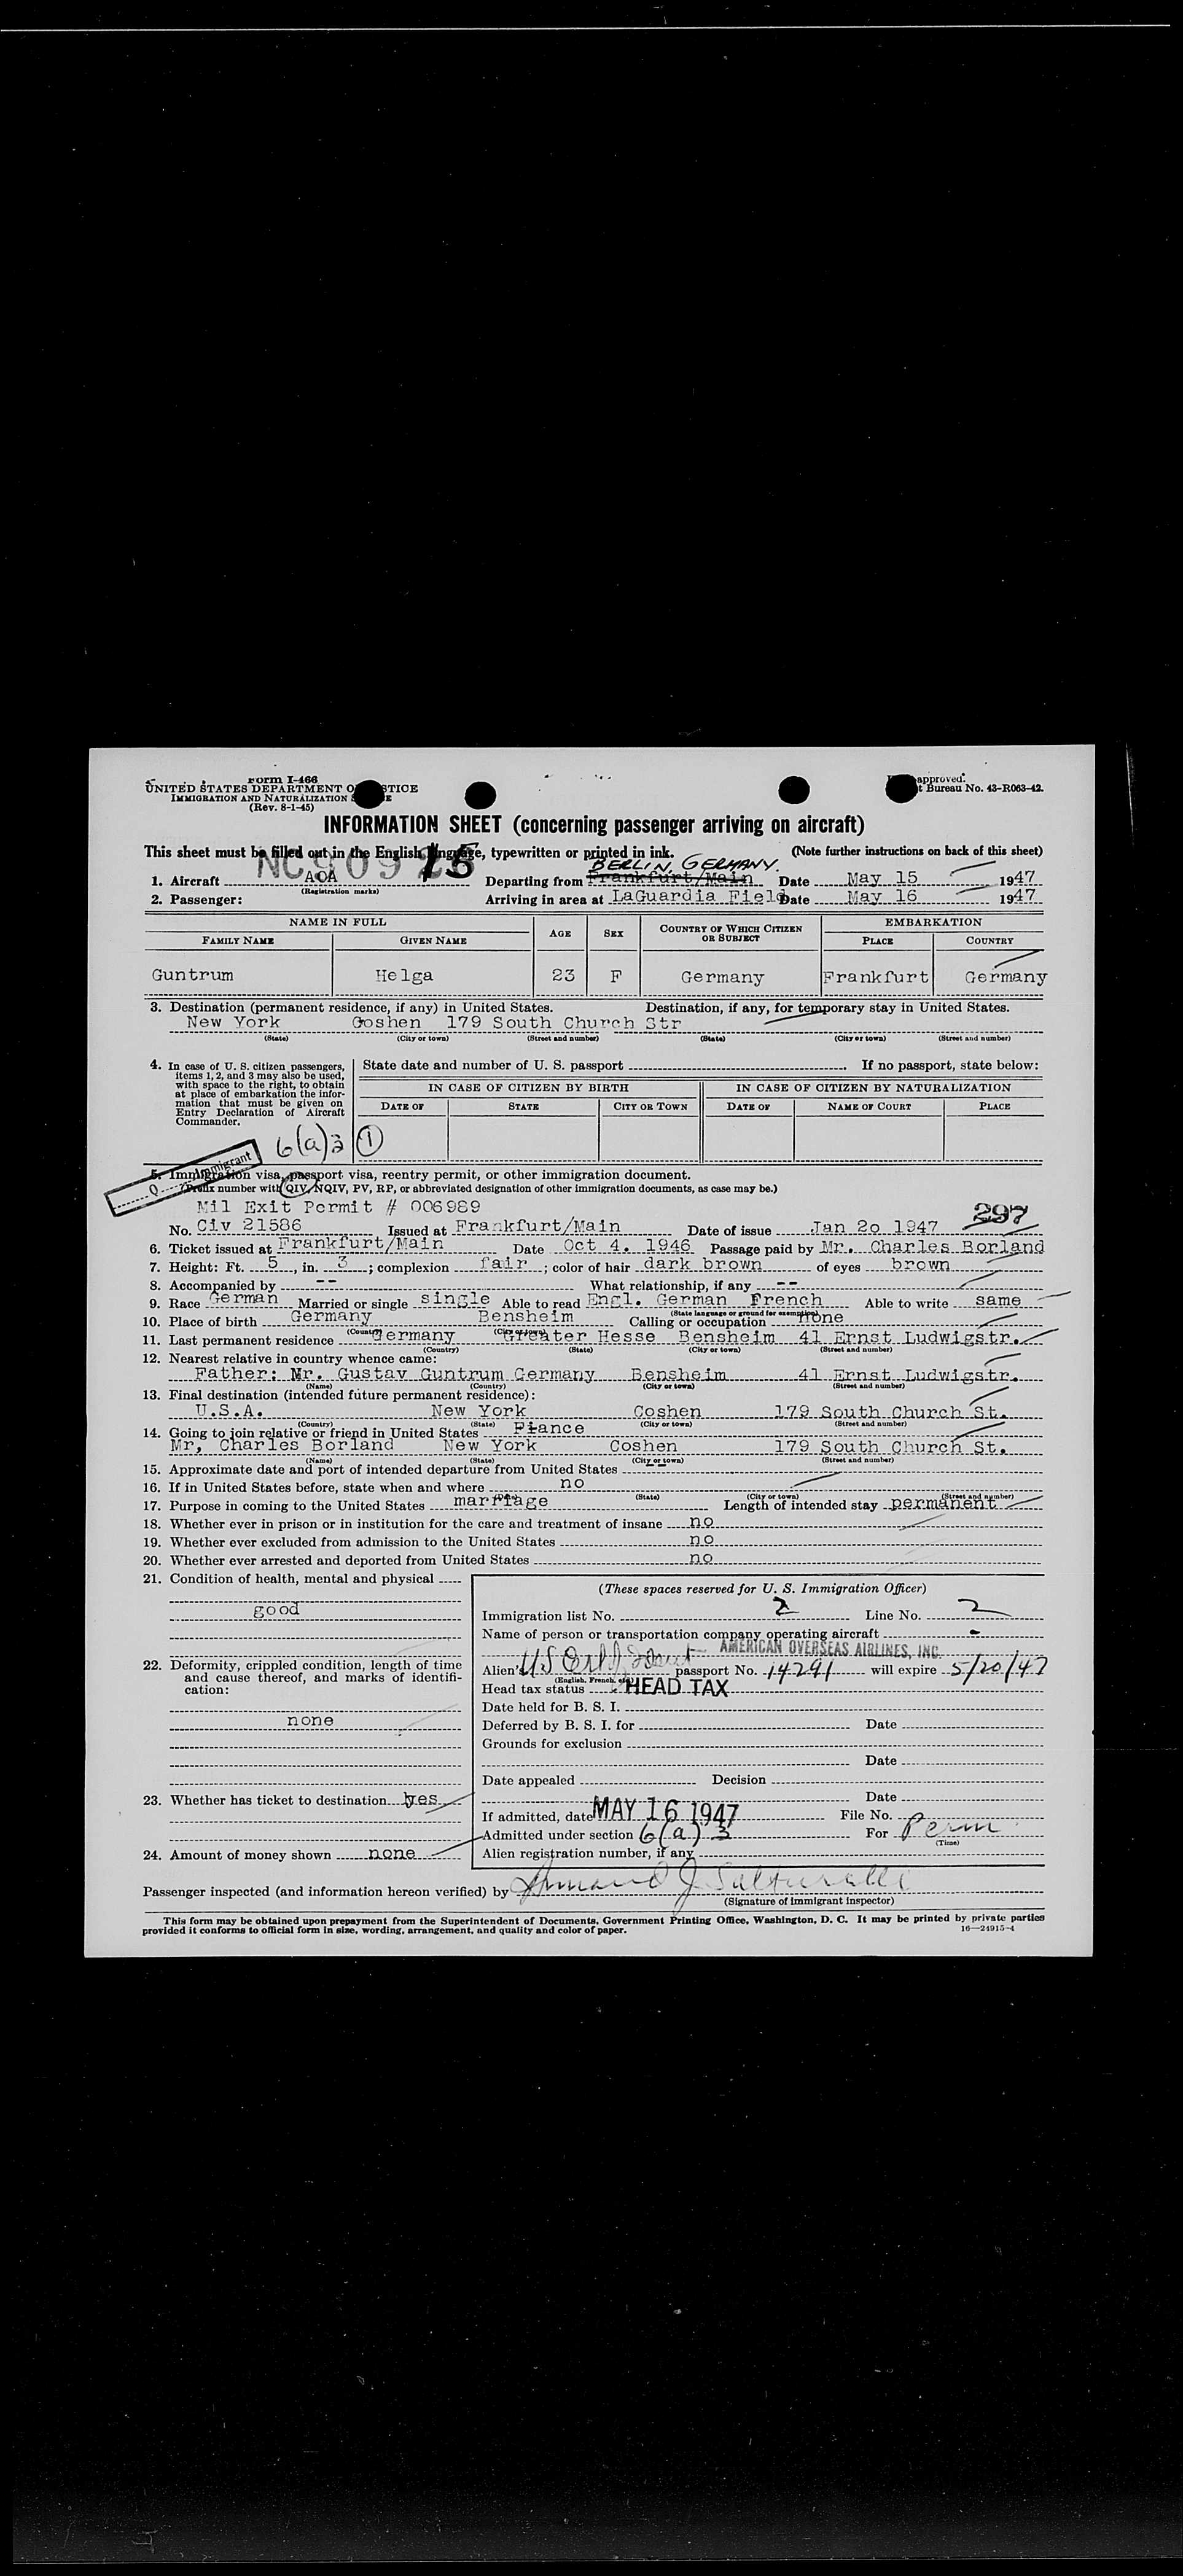 Form I-466
UNITED STATES DEPARTMENT O STICE
IMMIGRATION AND NATURALIZATION
(Rev. 8-1-45)
approved.
t Bureau No. 43-R063-42.
INFORMATION SHEET (concerning passenger arriving on aircraft)
This sheet must be filled out in the English language, typewritten or printed in ink. (Note further instructions on back of this sheet)
BERLIN, GERMANY.
1. Aircraft AOA Departing from Frankfurt/Main Date May 15 1947
(Registration marks)
2. Passenger: Arriving in area at LaGuardia Field Date May 16 1947
NAME IN FULL AGE SEX COUNTRY OF WHICH CITIZEN OR SUBJECT EMBARKATION
FAMILY NAME GIVEN NAME PLACE COUNTRY
Guntrum Helga 23 F Germany Frankfurt Germany
3. Destination (permanent residence, if any) in United States. Destination, if any, for temporary stay in United States.
New York Goshen 179 South Church Str
(State) (City or town) (Street and number) (State) (City or town) (Street and number)
4. In case of U. S. citizen passengers, items 1, 2, and 3 may also be used, with space to the right, to obtain at place of embarkation the information that must be given on Entry Declaration of Aircraft Commander.
State date and number of U. S. passport If no passport, state below:
IN CASE OF CITIZEN BY BIRTH IN CASE OF CITIZEN BY NATURALIZATION
DATE OF STATE CITY OR TOWN DATE OF NAME OF COURT PLACE
6(a)3 1
Immigrant
Q
5. Immigration visa, passport visa, reentry permit, or other immigration document.
(Prefix number with QIV, NQIV, PV, RP, or abbreviated designation of other immigration documents, as case may be.)
Mil Exit Permit # 006989
297
No. Civ 21586 Issued at Frankfurt/Main Date of issue Jan 20 1947
6. Ticket issued at Frankfurt/Main Date Oct 4. 1946 Passage paid by Mr. Charles Borland
7. Height: Ft. 5, in. 3; complexion fair; color of hair dark brown of eyes brown
8. Accompanied by -- What relationship, if any --
9. Race German Married or single single Able to read Engl. German French Able to write same
(State language or ground for exemption)
10. Place of birth Germany Bensheim Calling or occupation none
(Country) (City or town)
11. Last permanent residence Germany Greater Hesse Bensheim 41 Ernst Ludwigstr.
(Country) (State) (City or town) (Street and number)
12. Nearest relative in country whence came:
Father: Mr. Gustav Guntrum Germany Bensheim 41 Ernst Ludwigstr.
(Name) (Country) (City or town) (Street and number)
13. Final destination (intended future permanent residence):
U.S.A. New York Coshen 179 South Church St.
(Country) (State) (City or town) (Street and number)
14. Going to join relative or friend in United States Fiance
Mr, Charles Borland New York Coshen 179 South Church St.
(Name) (State) (City or town) (Street and number)
15. Approximate date and port of intended departure from United States --
16. If in United States before, state when and where no
(State) (City or town) (Street and number)
17. Purpose in coming to the United States marriage Length of intended stay permanent
18. Whether ever in prison or in institution for the care and treatment of insane no
19. Whether ever excluded from admission to the United States no
20. Whether ever arrested and deported from United States no
21. Condition of health, mental and physical
good
22. Deformity, crippled condition, length of time and cause thereof, and marks of identification:
none
23. Whether has ticket to destination yes
24. Amount of money shown none
(These spaces reserved for U. S. Immigration Officer)
Immigration list No. 2 Line No. 2
Name of person or transportation company operating aircraft
AMERICAN OVERSEAS AIRLINES, INC.
Alien's US passport No. 14291 will expire 5/20/47
(English, French, etc.)
Head tax status HEAD TAX
Date held for B. S. I.
Deferred by B. S. I. for Date
Grounds for exclusion
Date
Date appealed Decision
Date
If admitted, date MAY 16 1947 File No.
Admitted under section 6(a) 3 For Perm
(Time)
Alien registration number, if any
Passenger inspected (and information hereon verified) by
(Signature of immigrant inspector)
This form may be obtained upon prepayment from the Superintendent of Documents, Government Printing Office, Washington, D. C. It may be printed by private parties
provided it conforms to official form in size, wording, arrangement, and quality and color of paper. 16—24915-4